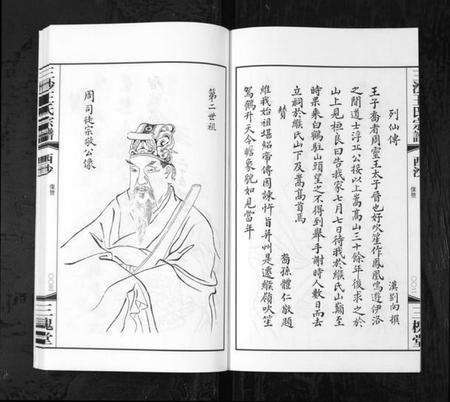 列仙傳
漢劉向撰
王子喬者周靈王太子晉也好吹笙作鳳凰鳴遊伊洛
之間道士浮丘公接以上嵩高山三十餘年後求之於
山上見桓良曰告我家七月七日待我於緱氏山巔至
時果乘白鶴駐山頭望之不得到舉手謝時人數日而去
立祠於緱氏山下及嵩高首焉
贊
裔孫體仁敬題
維我始祖堪紹帝傳因諫忤旨并州是遷緱嶺吹笙
駕鶴升天今瞻象貌如見當年
三槐堂
第二世祖
周司徒宗敬公像
三沙王氏宗譜
西沙
像贊
三槐堂